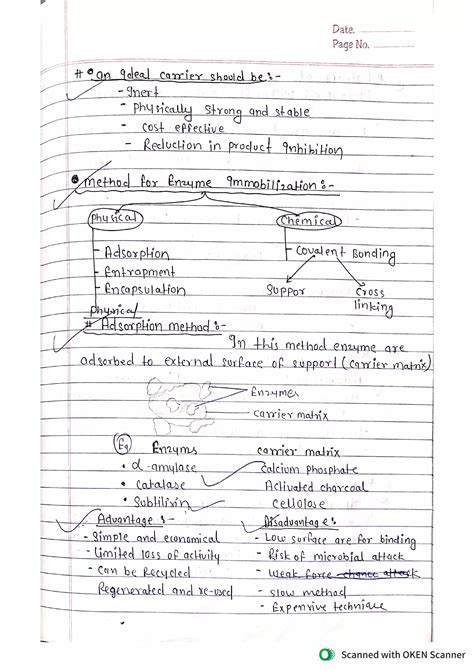 Date.
Page No.
# • An Ideal carrier should be :-
- Inert
- Physically strong and stable
- cost effective
- Reduction in product Inhibition
• Method for Enzyme Immobilization :-
Physical
Chemical
- Adsorption
- Entrapment
- Encapsulation
- Covalent Bonding
Suppor
Cross linking
Physical
# Adsorption method :-
In this method enzyme are
adsorbed to external surface of support (carrier matrix)
Enzymes
carrier matrix
Eg Enzyms carrier matrix
• α-amylase Calcium phosphate
• catalase Activated charcoal
• Subtilixin cellolose
Advantage :-
- Simple and economical
- Limited loss of activity
- can be Recycled
Regenerated and re-used
Disadvantage :-
- Low surface are for binding
- Risk of microbial attack
- Weak force chance attack
- slow method
- Expenrive technique
Scanned with OKEN Scanner